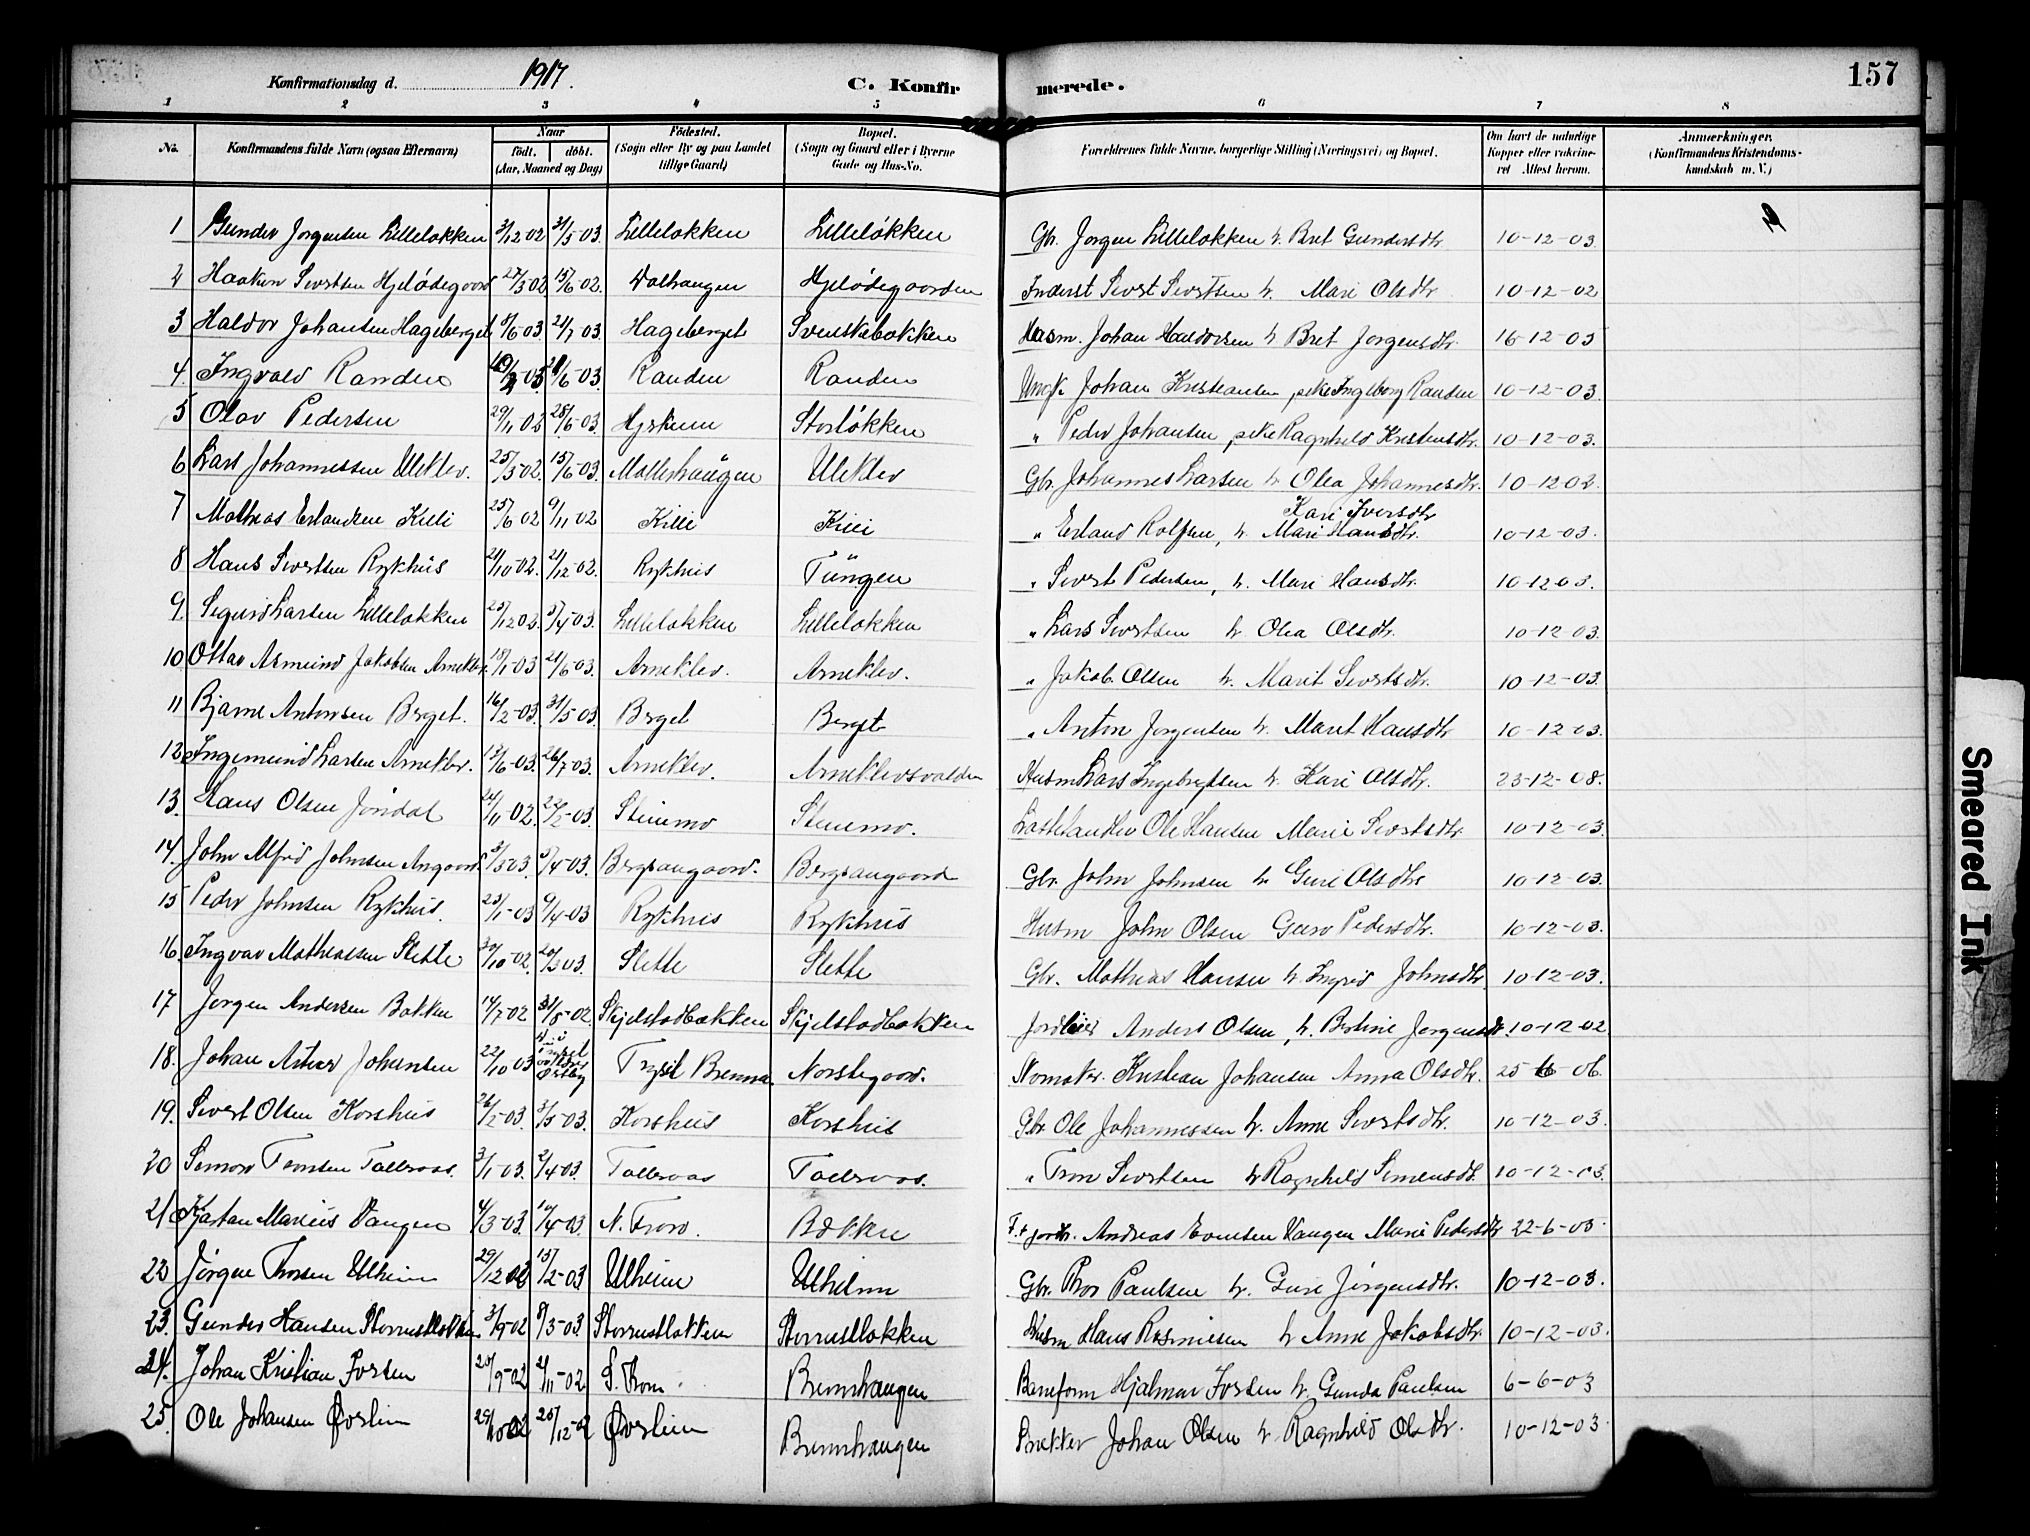 157
Konfirmationsdag d. 1917. C. Konfirmerede.
1 2 3 4 5 6 7 8
No. Konfirmandens fulde Navn (ogsaa Efternavn) Naar født. døbt. (Aar, Maaned og Dag) Födested. (Sogn eller By og paa Landet tillige Gaard) Bopæl. (Sogn og Gaard eller i Byerne Gade og Hus-No. Forældrenes fulde Navne, borgerlige Stilling (Næringsvei) og Bopæl. Om havt de naturlige Kopper eller vakcineret Attest herom. Anmærkninger. (Konfirmandens Kristendomskundskab m. V.)
1 Gunder Jorgensen Lillelokken 3/12 02 31/5-03. Lillelokken Lilleløkken Gbr. Jorgen Lillelokken h. Brit Gundersdtr 10-12-03
2 Haakon Sivertsen Hjelødegaard 27/3-02 15/6-02. Hjelødegaarden Inderst Sivert Sivertsen h. Mari Olsdtr 10-12-02
3 Haldor Johansen Hageberget 8/6-03 21/7 03. Hageberget Svenskebakken Husm. Johan Haldorsen h Brit Jorgensdtr. 16-12-03
4. Ingvald Randen 21/6-03. Randen Randen Ungk. Johan Kristiansen, pike Ingeborg Randen 10-12-03.
5 Olav Pedersen 29/11 02 28/6-03. Storløkken " Peder Johansen, pike Ragnhild Kristensdtr. 10-12-03.
6 Lars Johannessen Uleklev. 25/3-02. 15/6-03. Mollerhaugen Uleklev Gbr. Johannes Larsen h Olea Johannesdtr. 10-12-02.
7 Mathias Erlandsen Killi 25/6 02 9/11 02 Killi Killi " Erland Rolfsen, h. Kari Iversdtr Mari Hansdtr. 10-12-03.
8 Hans Sivertsen Rykhus 21/10-02. 21/12-02. Rykhus Tüngen " Sivert Pedersen, h. Mari Hansdtr. 10-12 03.
9. Sigurd Larsen Lillelokken 25/12 02. 5/4-03. Lillelokken Lillelokken " Lars Sivertsen h. Olea Olsdtr. 10-12-03.
10. Ottar Asmund Jakobsen Arneklev. 18/1-03 21/6-03. Arneklev. Arneklev. " Jakob Olsen h. Marit Sivertsdtr. 10-12-03.
11 Bjarne Antonsen Berget. 16/2-03. 31/5-03. Berget Berget " Anton Jorgensen h. Marit Hansdtr 10-12-03.
12. Ingemund Larsen Arneklev. 13/6-03. 26/7-03. Arneklev. Arneklevsvolden Husm Lars Ingebretsen h. Kari Olsdtr. 23-12-08.
13. Hans Olsen Jöndal 24/11-02. 22/2-03. Stenemo Stenemo. Ole Hansen Marie Sivertsdtr. 10-12-03.
14. John Alfred Johnsen Angaard. 3/3 03. 5/4-03. Bergsaugaard. Bergsaugaard Gbr. John Johnsen h Guri Olsdtr 10-12-03.
15 Peder Johnsen Rykhus. 23/1-03 9/4-03 Rykhus Rykhus Husm John Olsen Guro Pedersdtr. 10-12-03.
16. Ingvar Mathiassen Slette 30/10-02. 20/3 03. Slette Slette Gbr. Mathias Hansen h Ingrid Johnsdtr. 10-12-03.
17 Jorgen Andersen Bakken 14/7-02 31/8-02. Skjelstadbakken Skjelstadbakken Jordleier Anders Olsen, h. Bertine Jorgensdtr. 10-12-02
18. Johan Artur Johansen 22/10 03 Trysil Brenna. Norstegaard. Skomaker. Kristian Johansen Anna Olsdtr. 25-6-06.
19. Sivert Olsen Korshus 26/2-03. 3/5-03. Korshus Korshus Gbr. Ole Johannessen h. Anne Sivertsdtr. 10-12-03.
20 Simen Tronsen Tolleraas. 3/1-03. 2/4-03 Tolleraas Tolleraas. " Tron Sivertsen h Ragnhild Simensdtr. 10-12-03.
21 Kjartan Marius Vangen 4/3-03. 10/4-03. N. Fron. Bakken Andreas Evensen Vangen Marie Pedersdtr 22-6-05
22 Jørgen Thorsen Ulheim 29/12 02 15/2-03 Ulheim Ulheim Gbr. Thor Paulsen h. Guri Jörgensdtr. 10-12-03.
23. Gunder Hansen Storrustlokken 3/9-02 8/3-03 Storrustlokken Storrustlokken Husm Hans Rasmusen h Anne Jakobsdtr. 10-12-03.
24. Johan Kristian Fossen 25/9-02 2/11-02 S. Fron. Brennhaugen Baneform Hjalmar Fossen h. Gunda Paulsen 6-6-03
25. Ole Johansen Øvrlien 29/10 02 25/12-02 Øvrlien Brennhaugen Snekker Johan Olsen h Ragnhild Olsdtr. 10-12-03
Smeared Ink